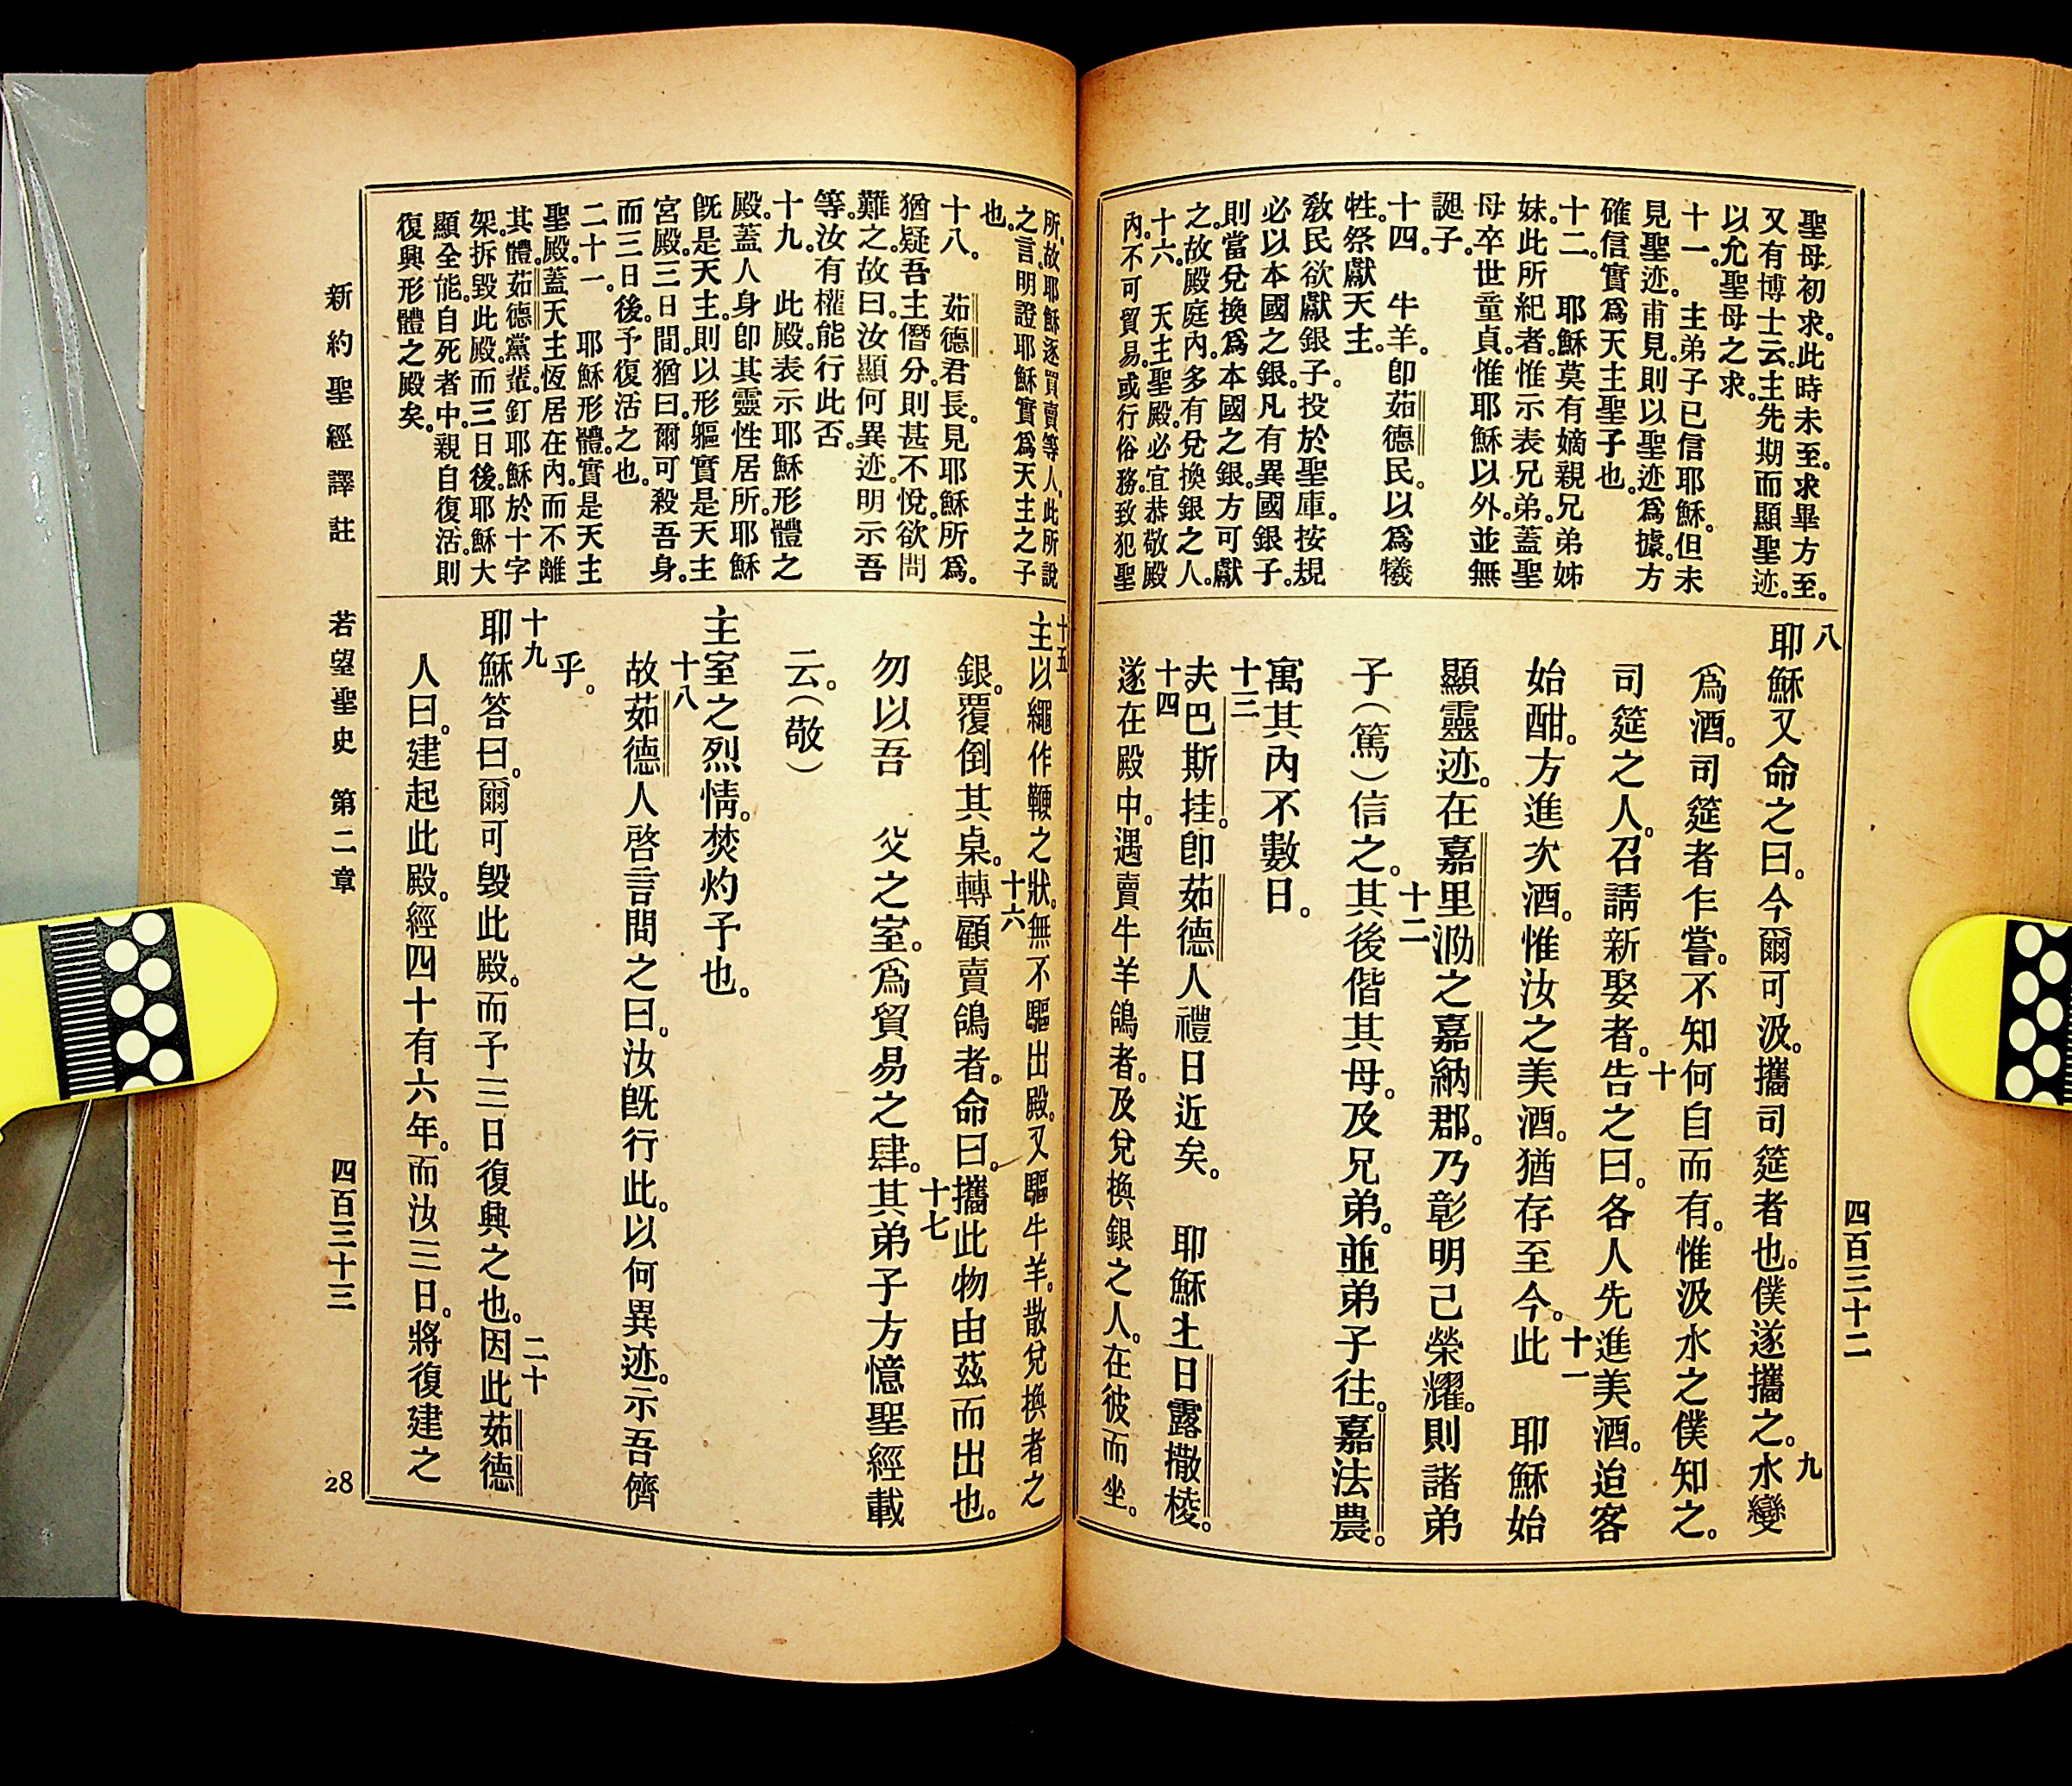 四百三十二
聖母初求。此時未至。求畢方至。
又有博士云。主先期而顯聖迹。
以允聖母之求。
十一。　主弟子已信耶穌。但未
見聖迹。甫見。則以聖迹爲據。方
確信實爲天主聖子也。
十二。　耶穌莫有嫡親兄弟姊
妹。此所紀者。惟示表兄弟。蓋聖
母卒世童貞。惟耶穌以外。並無
誕子。
十四。　牛羊。卽茹德民。以爲犧
牲。祭獻天主。
敎民欲獻銀子。投於聖庫。按規
必以本國之銀。凡有異國銀子。
則當兌換爲本國之銀。方可獻
之。故殿庭內。多有兌換銀之人。
十六。　天主聖殿。必宜恭敬殿
內。不可貿易。或行俗務。致犯聖
八
耶穌又命之曰。今爾可汲。攜司筵者也。僕遂攜之。水變
九
爲酒。司筵者乍嘗。不知何自而有。惟汲水之僕知之。
十
司筵之人。召請新娶者。告之曰。各人先進美酒。迨客
始酣。方進次酒。惟汝之美酒。猶存至今。此　耶穌始
十一
顯靈迹。在嘉里泐之嘉納郡。乃彰明己榮耀。則諸弟
十二
子（篤）信之。其後偕其母。及兄弟。並弟子往。嘉法農。
寓其內不數日。
十三
夫巴斯挂。卽茹德人禮日近矣。　耶穌上日露撒棱。
十四
遂在殿中。遇賣牛羊鴿者。及兌換銀之人。在彼而坐。
所。故耶穌逐買賣等人。此所說
之言。明證耶穌實爲天主之子
也。
十八。　茹德君長。見耶穌所爲。
猶疑吾主僭分。則甚不悅。欲問
難之。故曰。汝顯何異迹。明示吾
等。汝有權能行此否。
十九。　此殿。表示耶穌形體之
殿。蓋人身卽其靈性居所。耶穌
旣是天主。則以形軀實是天主
宮殿。三日間。猶曰。爾可殺吾身。
而三日後。予復活之也。
二十一。　耶穌形體。實是天主
聖殿。蓋天主恆居在內。而不離
其體。茹德黨輩。釘耶穌於十字
架。拆毀此殿。而三日後。耶穌大
顯全能。自死者中。親自復活。則
復興形體之殿矣。
十五
主以繩作鞭之狀。無不驅出殿。又驅牛羊。散兌換者之
十六
銀。覆倒其桌。轉顧賣鴿者。命曰。攜此物由茲而出也。
勿以吾　父之室。爲貿易之肆。其弟子方憶聖經載
十七
云。（敬）
主室之烈情。焚灼予也。
十八
故茹德人啓言問之曰。汝旣行此。以何異迹。示吾儕
乎。
十九
耶穌答曰。爾可毀此殿。而予三日復興之也。因此茹德
二十
人曰。建起此殿。經四十有六年。而汝三日。將復建之
新約聖經譯註　若望聖史　第二章　四百三十三
28